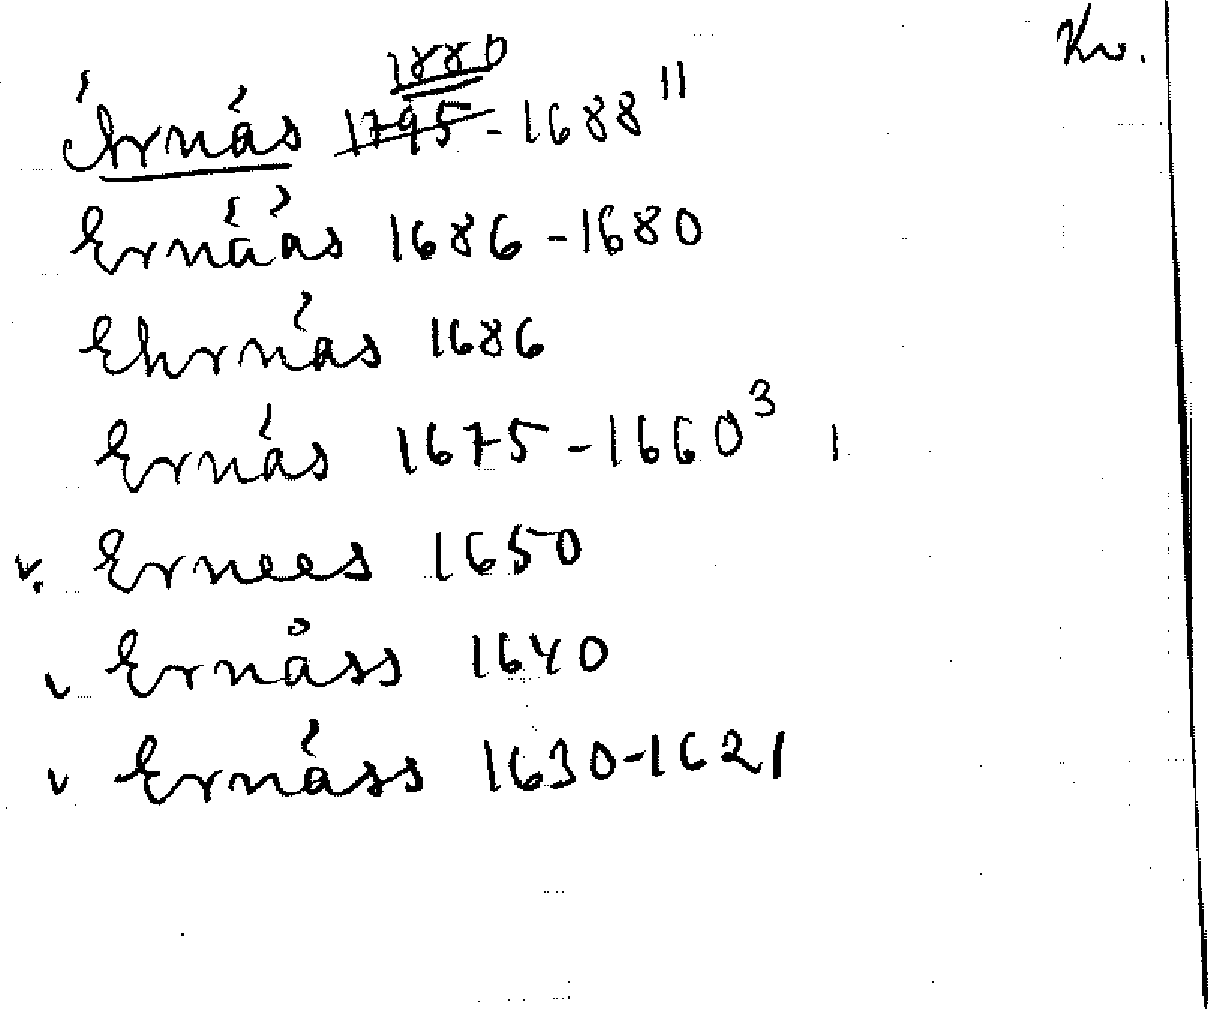 Kv.
1880
Árnäs 1795-1688 11
Ernääs 1686-1680
Ehrnäs 1686
Ernäs 1675-1660 3
v. Ernees 1650
v Ernåss 1640
v Ernäss 1630-1621